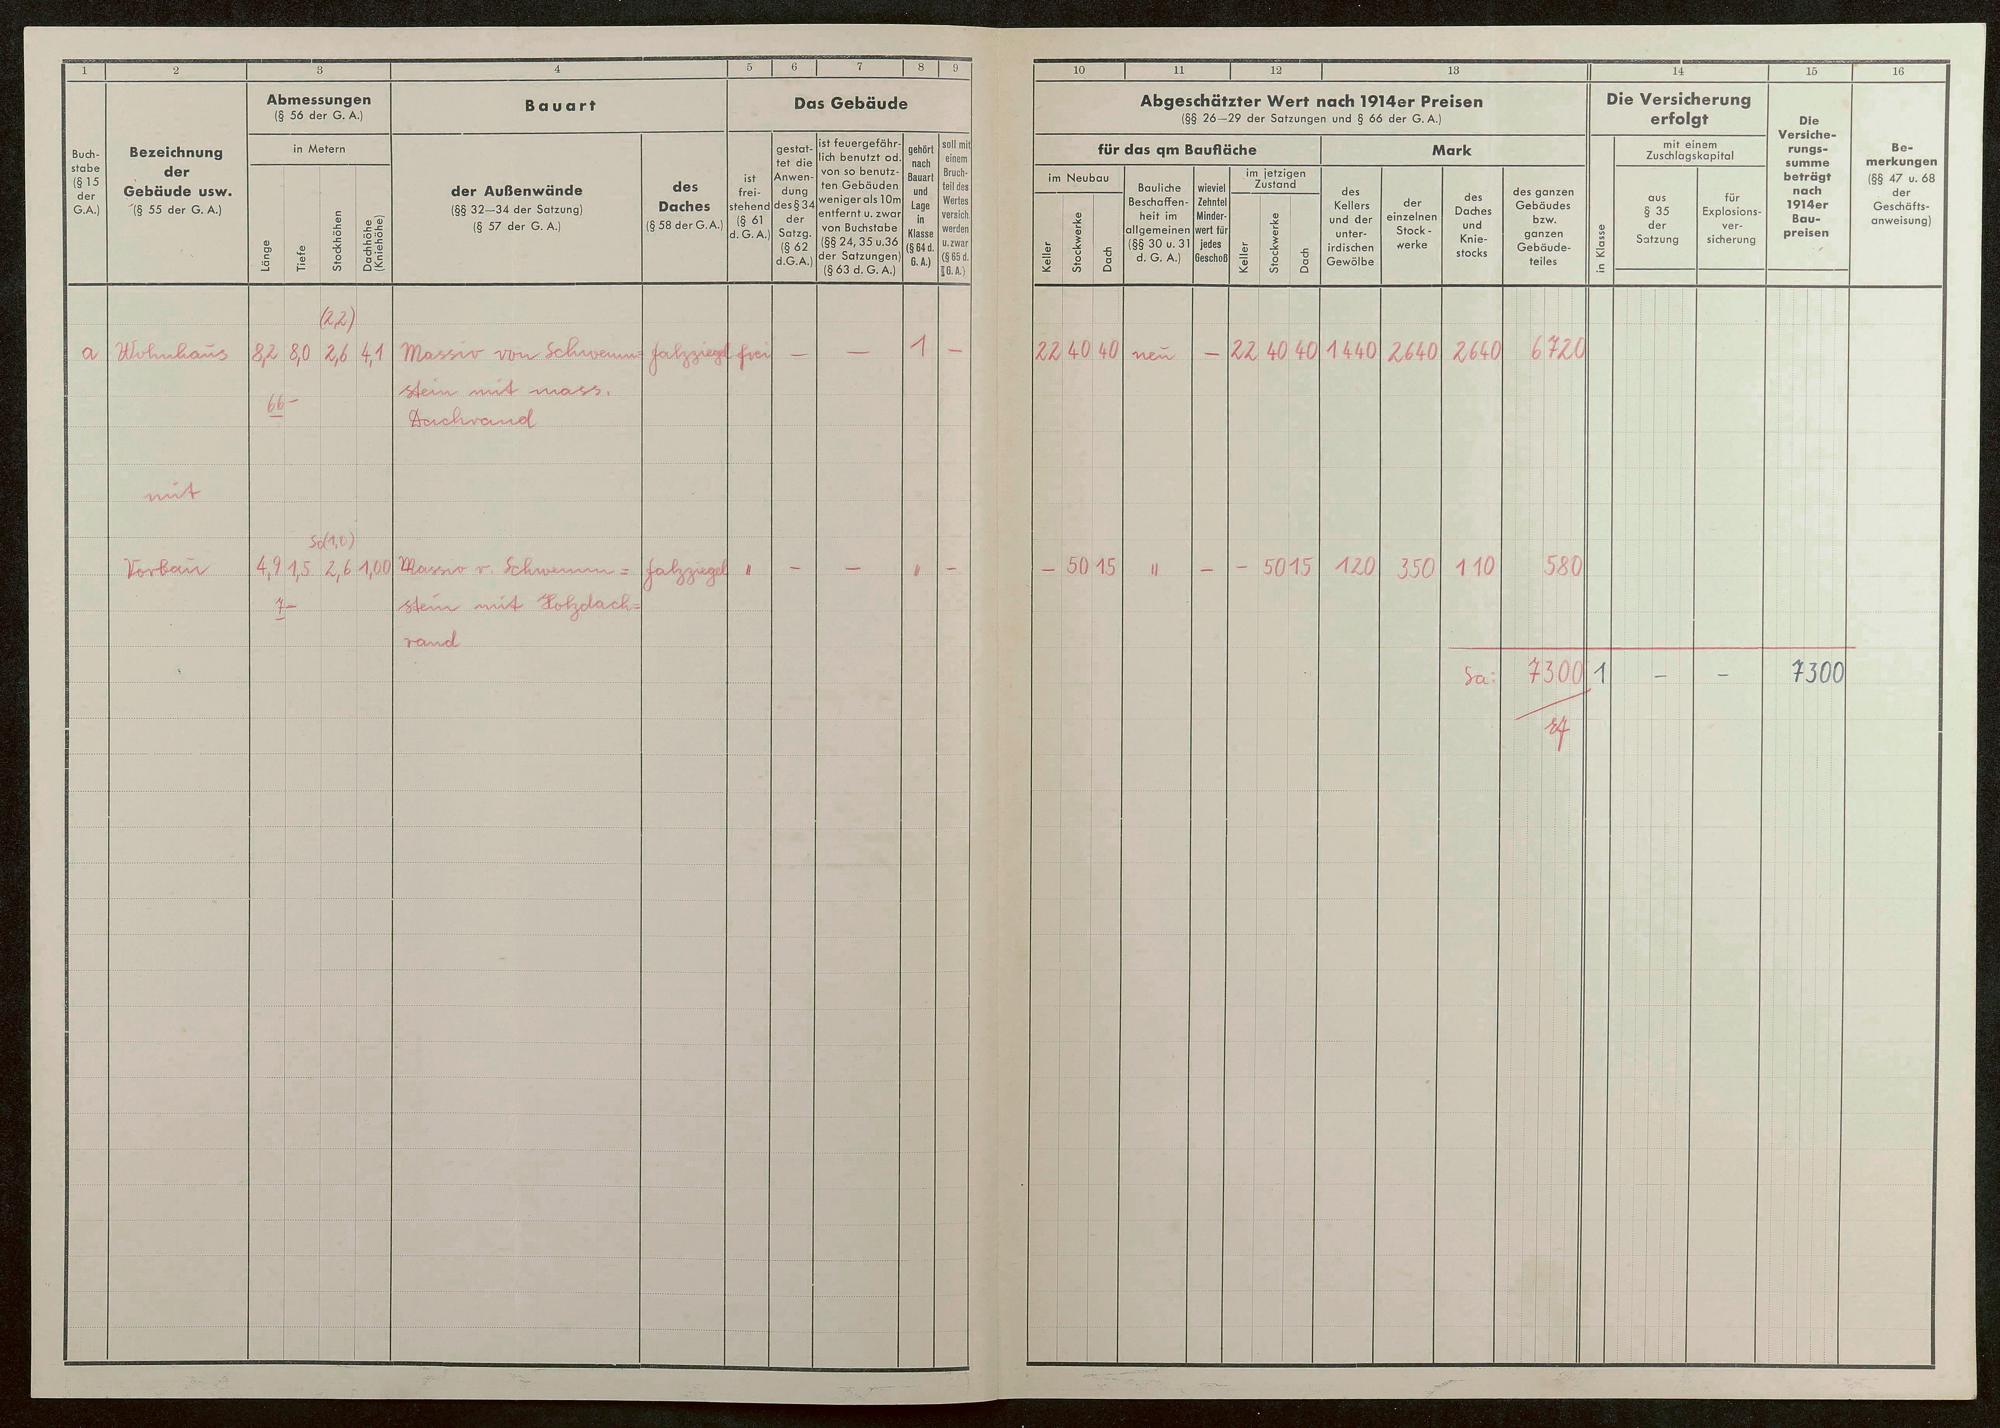 1 2 3 4 5 6 7 8 9
Buch-
stabe
(§ 15
der
G.A.)
Bezeichnung
der
Gebäude usw.
(§ 55 der G. A.)
Abmessungen
(§ 56 der G. A.)
in Metern
Länge
Tiefe
Stockhöhen
Dachhöhe
(Kniehöhe)
Bauart
der Außenwände
(§§ 32—34 der Satzung)
(§ 57 der G. A.)
des
Daches
(§ 58 der G. A.)
Das Gebäude
ist
frei-
stehend
(§ 61
d. G. A.)
gestat-
tet die
Anwen-
dung
des § 34
der
Satzg.
(§ 62
d.G.A.)
ist feuergefähr-
lich benutzt od.
von so benutz-
ten Gebäuden
weniger als 10m
entfernt u. zwar
von Buchstabe
(§§ 24, 35 u.36
der Satzungen)
(§ 63 d. G. A.)
gehört
nach
Bauart
und
Lage
in
Klasse
(§ 64 d.
G. A.)
soll mit
einem
Bruch-
teil des
Wertes
versich.
werden
u. zwar
(§ 65 d.
G. A.)
(2,2)
a Wohnhaus 8,2 8,0 2,6 4,1 Massiv von Schwemm= falzziegel frei — — 1 —
stein mit mass.
66-
Dachrand
mit
So(1,0)
Vorbau 4,9 1,5 2,6 1,00 Massiv v. Schwemm= falzziegel " — — " —
7- stein mit Holzdach=
rand
10 11 12 13 14 15 16
Abgeschätzter Wert nach 1914er Preisen
(§§ 26—29 der Satzungen und § 66 der G. A.)
für das qm Baufläche
im Neubau
Keller
Stockwerke
Dach
Bauliche
Beschaffen-
heit im
allgemeinen
(§§ 30 u. 31
d. G. A.)
wieviel
Zehntel
Minder-
wert für
jedes
Geschoß
im jetzigen
Zustand
Keller
Stockwerke
Dach
Mark
des
Kellers
und der
unter-
irdischen
Gewölbe
der
einzelnen
Stock-
werke
des
Daches
und
Knie-
stocks
des ganzen
Gebäudes
bzw.
ganzen
Gebäude-
teiles
Die Versicherung
erfolgt
in Klasse
mit einem
Zuschlagskapital
aus
§ 35
der
Satzung
für
Explosions-
ver-
sicherung
Die
Versiche-
rungs-
summe
beträgt
nach
1914er
Bau-
preisen
Be-
merkungen
(§§ 47 u. 68
der
Geschäfts-
anweisung)
22 40 40 neu — 22 40 40 1440 2640 2640 6720
— 50 15 " — — 50 15 120 350 110 580
Sa: 7300 1 — — 7300